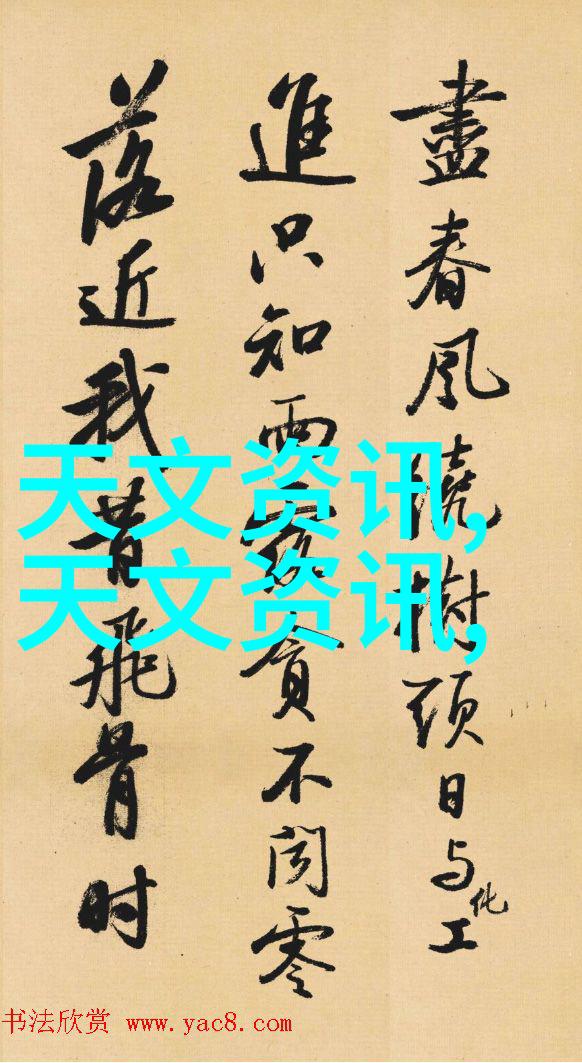 盡春風繞樹頭日与化工
進只知雨露貪不聞零
落近我昔飛骨时
天文资讯,
天文资讯,
书法欣赏 www.yac8.com